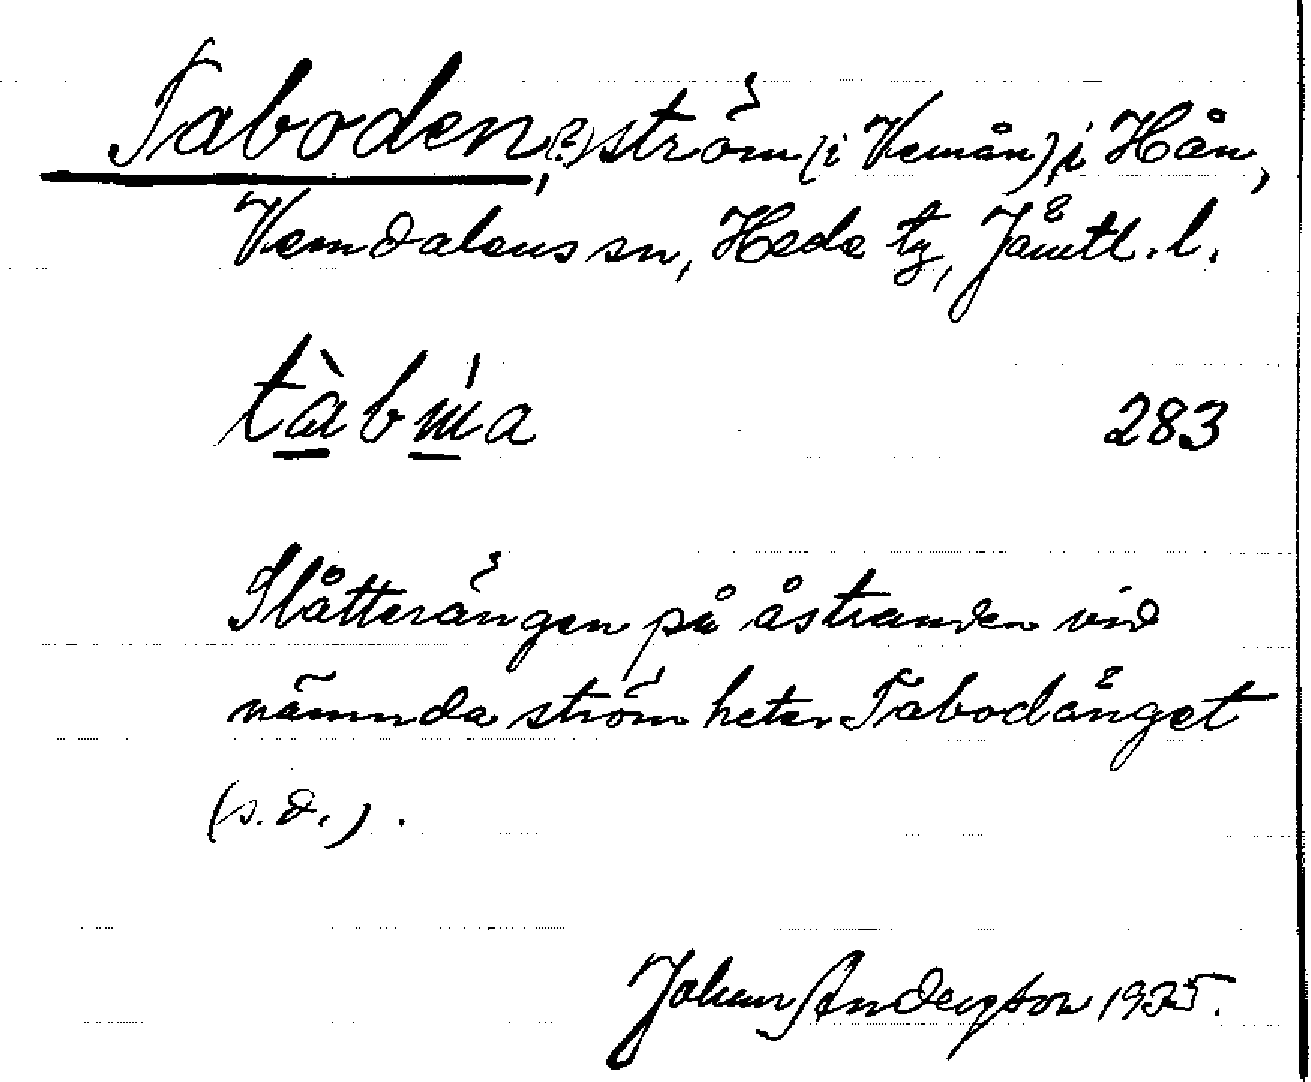 Taboden,(?) ström (i Vemån) i Hån,
Vemdalens sn, Hede tg, Jämtl. l.
tàbm̍a 283
Slåtterängen på åstranden vid
nämnda ström heter Tabodänget
(s.d.).
Johan Anderson 1935.